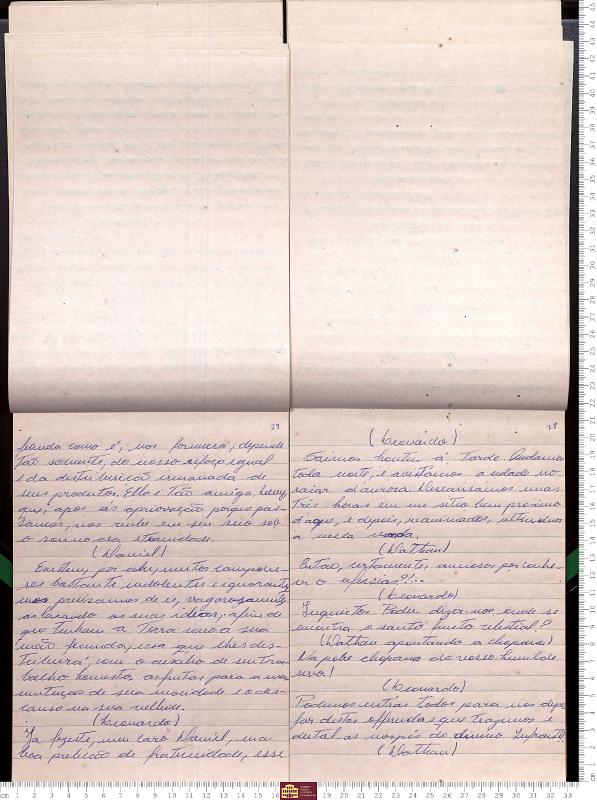 29
funda como é, nos fornecerá, dependen
tão somente, do nosso esforço igual
e da distribuição irmanada de
seus produtos. Ella é tão amiga,
que, após as aprovação porque pas-
samos, nos recebe em seu seio sob
o somno da eternidade.
(Daniel)
Existem, por ahy, muitos campone-
ses bastante indolentes e ignorantes
mas precisamos de ir, vagarosamente
atacando as suas ideias; afim de
que tenham a Terra como a sua
mãe fecunda, essa que lhes dis-
tribuirá, com o auxilio de um tra-
balho honesto, as frutas para a ma-
nutenção de sua mocidade e o des-
canso na sua velhice.
(Leonardo)
Ja fizeste, meu caro Daniel, uma
boa predicção de fraternidade, esse
28
(Leonardo)
Saimos hontem á tarde. Andamos
toda noite, e avistámos a cidade no
raiar d'aurora. Descansámos umas
tres horas em um sitio bem proximo
d'aqui, e depois, reanimados,
a nossa
(Nathan)
Então, certamente, anciosos por conhe-
cer o Messias?!...
(Leonardo)
Inquietos. Podes dizer-nos, onde se
encontra o santo fructo celestial?
(Nathan apontando a choupana)
Na pobre choupana do vosso humilde
servo!
(Leonardo)
Podemos entrar todos para nos
das offerendas que trazemos e
o divino Infante?!
(Nathan)